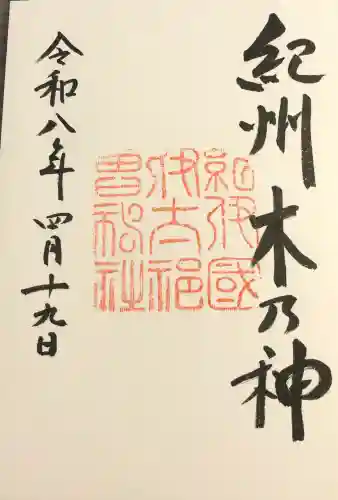 紀州 木乃神
紀伊國
伊太祁
曽神社
令和八年 四月十九日